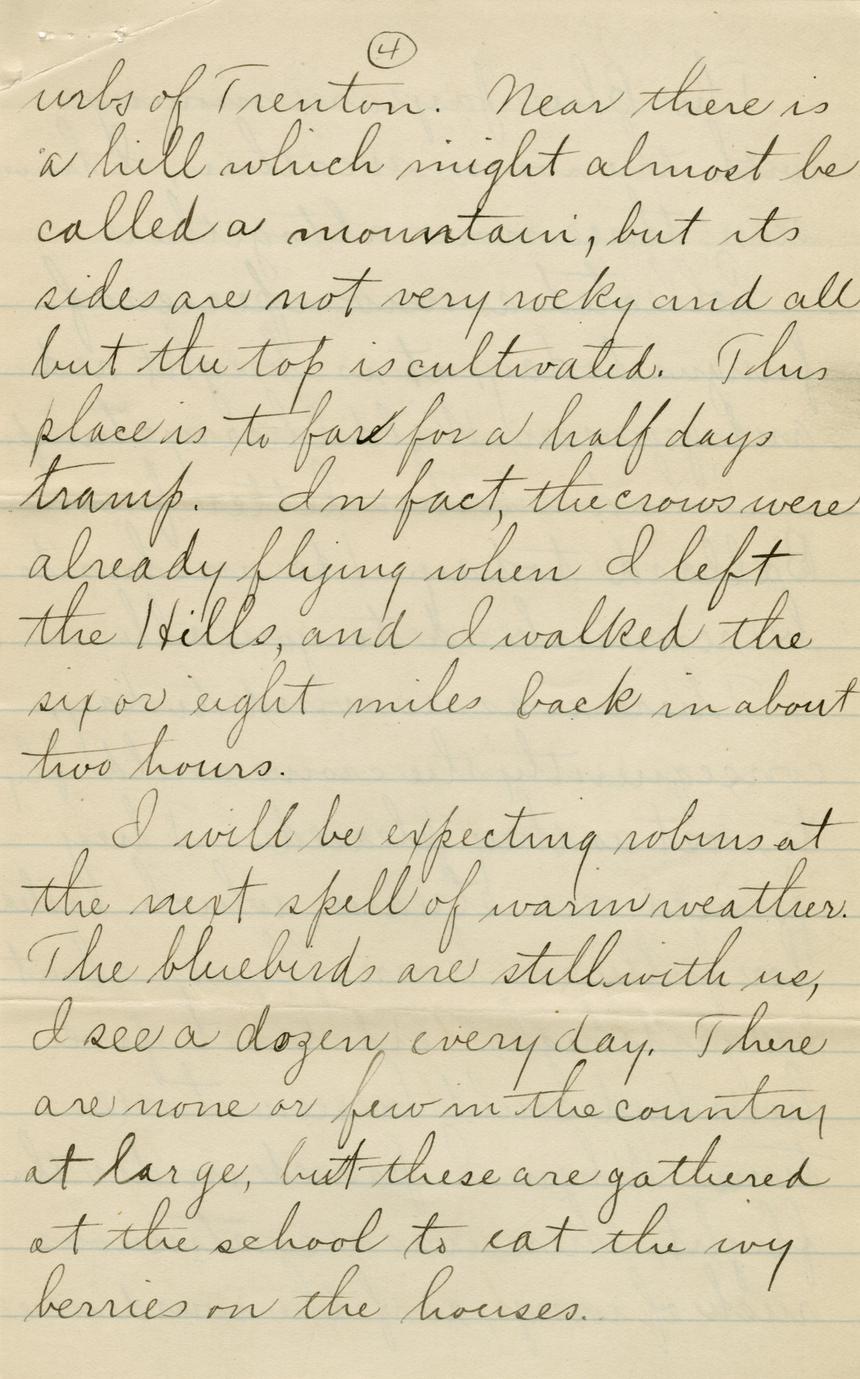 4
urbs of Trenton. Near there is
a hill which might almost be
called a mountain, but its
sides are not very rocky and all
but the top is cultivated. This
place is to far for a half days
tramp. In fact, the crows were
already flying when I left
the Hills, and I walked the
six or eight miles back in about
two hours.
I will be expecting robins at
the next spell of warm weather.
The bluebirds are still with us,
I see a dozen every day. There
are none or few in the country
at large, but these are gathered
at the school to eat the ivy
berries on the houses.